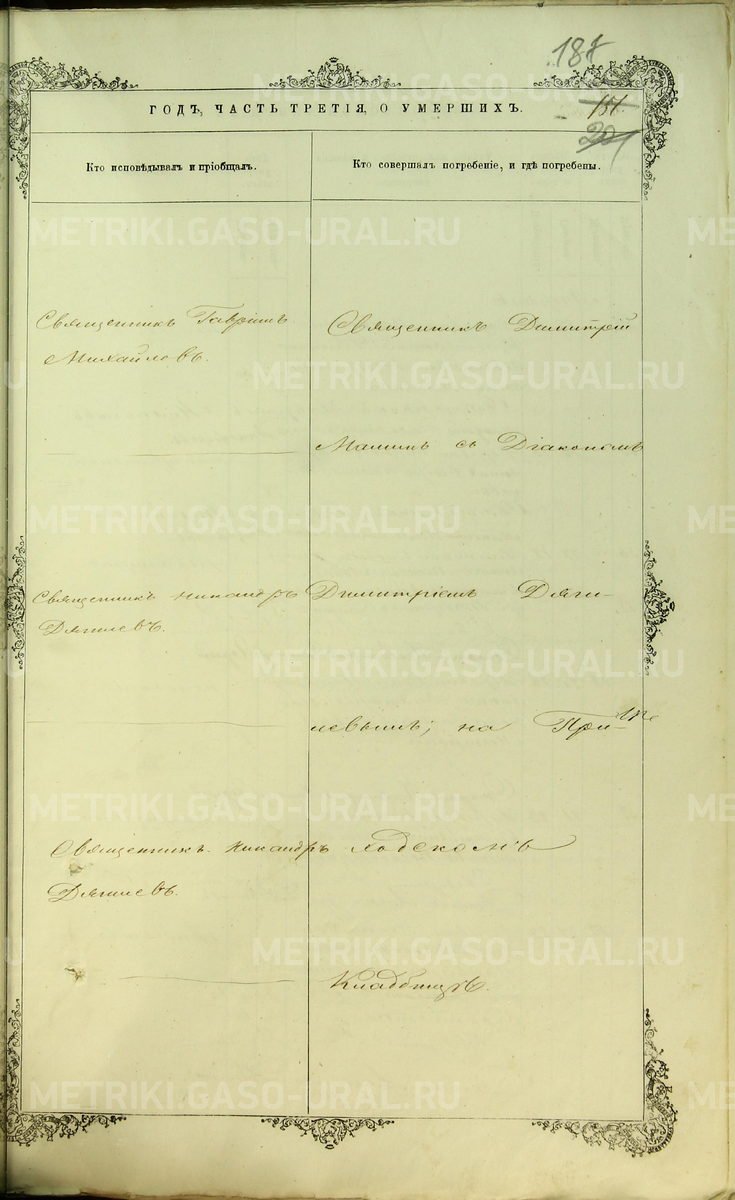 187
ГОДЪ, ЧАСТЬ ТРЕТІЯ, О УМЕРШИХЪ.
151
201
Кто исповѣдывалъ и пріобщалъ.
Кто совершалъ погребеніе, и гдѣ погребены.
METRIKI.GASO-URAL.RU
Священникъ Гавріилъ
Михайловъ.
Священникъ Никандръ
Дягилевъ.
Священникъ Никандръ
Дягилевъ.
Священникъ Димитрій
Малинъ съ Діакономъ
Димитріемъ Дяги-
левымъ; на При-
ходскомъ
Кладбищѣ.